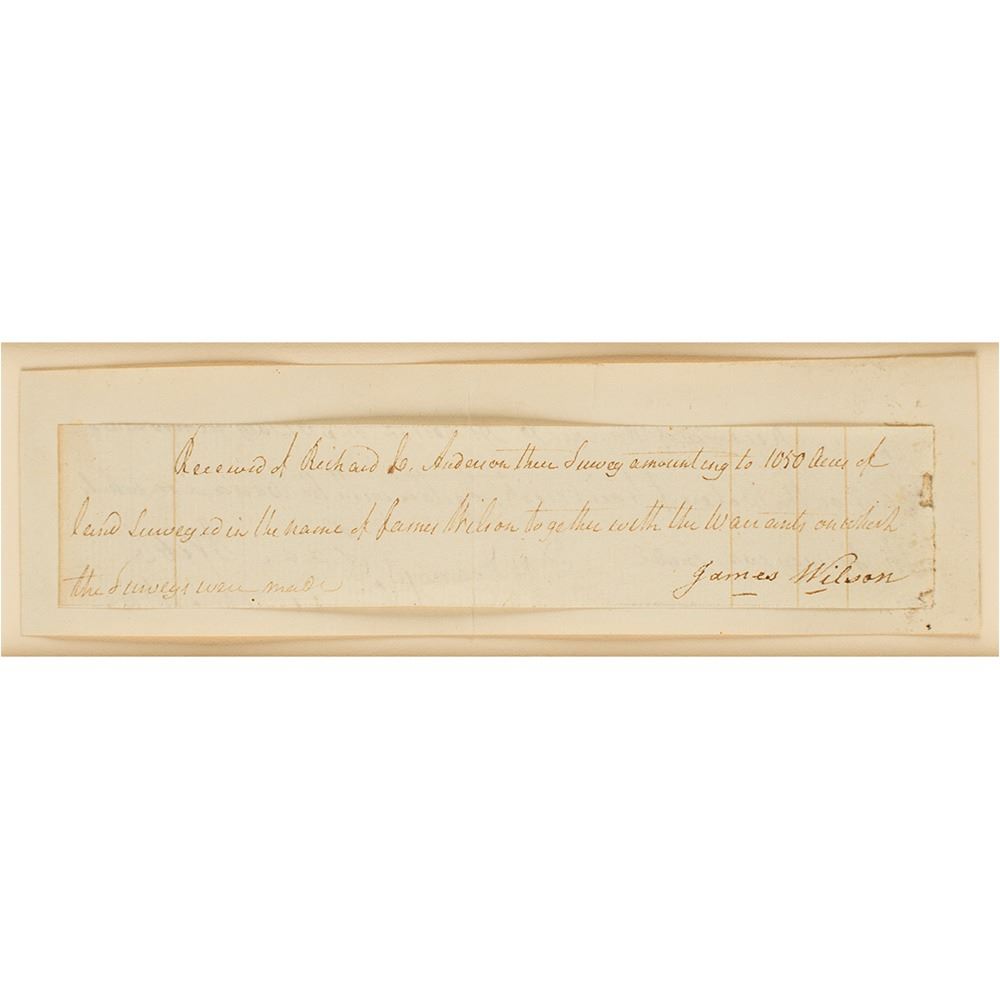 Received of Richard C. Anderson three Survey amounting to 1050 Acres of
land Surveyed in the name of James Wilson together with the Warrants on which
the Surveys were made
James Wilson